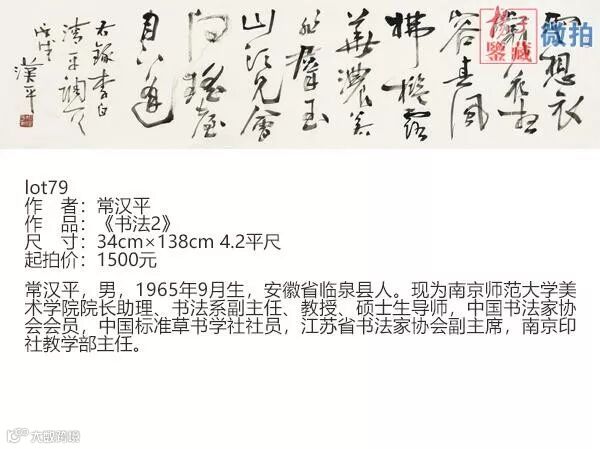 雲想衣
裳花想
容春風
拂檻露
華濃若
非群玉
山頭見會
向瑤臺
月下逢
右錄李白
清平調
戊戌 漢平
扬子
鉴藏 微拍
lot79
作 者：常汉平
作 品：《书法2》
尺 寸：34cm×138cm 4.2平尺
起拍价：1500元
常汉平，男，1965年9月生，安徽省临泉县人。现为南京师范大学美
术学院院长助理、书法系副主任、教授、硕士生导师，中国书法家协
会会员，中国标准草书学社社员，江苏省书法家协会副主席，南京印
社教学部主任。
大数跨境